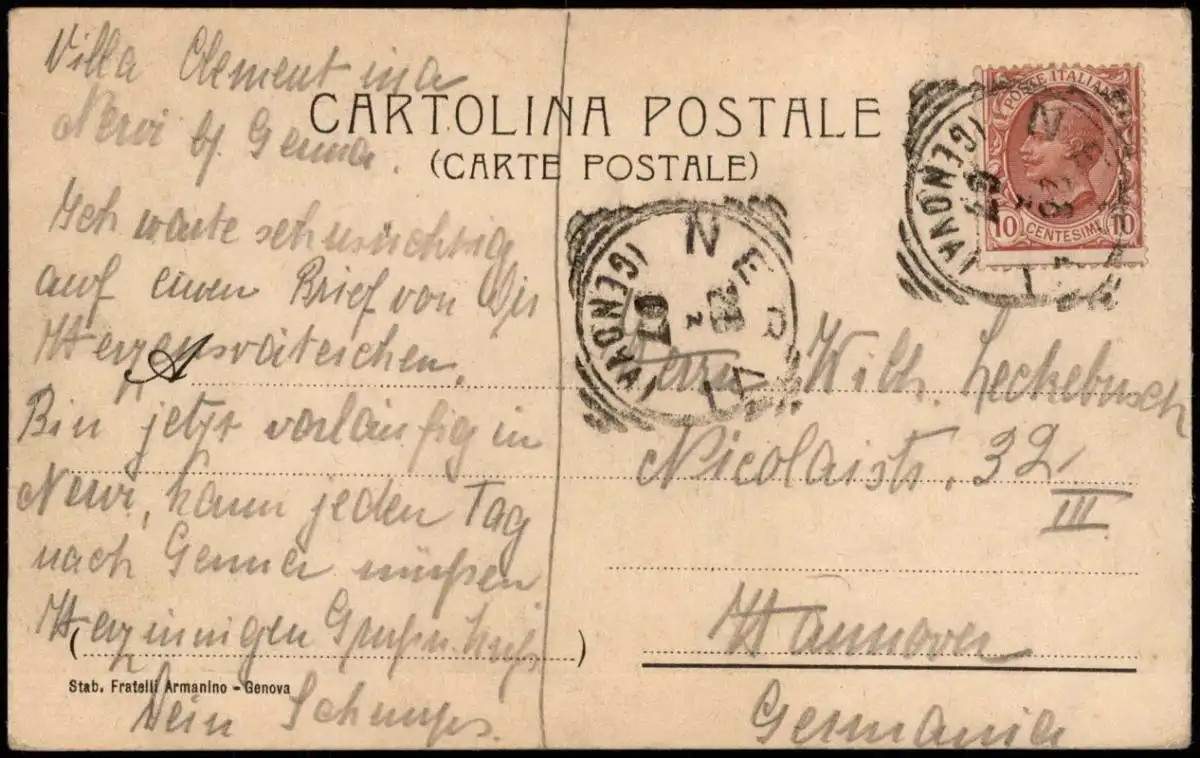 Villa Clementina
Nervi b/. Genua.
CARTOLINA POSTALE
(CARTE POSTALE)
Ich warte sehnsüchtig
auf einen Brief von Dir
Herzensväterchen.
Bin jetzt vorläufig in
Nervi, kann jeden Tag
nach Genua müßen
Herzinnigen Gruß u. Kuß
Dein Schnups.
A
Herrn Wilh. Leckebusch
Nicolaistr. 32
III
Hannover
Germania
Stab. Fratelli Armanino - Genova
POSTE ITALIANE
10 CENTESIMI 10
NERVI
(GENOVA)
28 2 07
NERVI
(GENOVA)
28 2 07